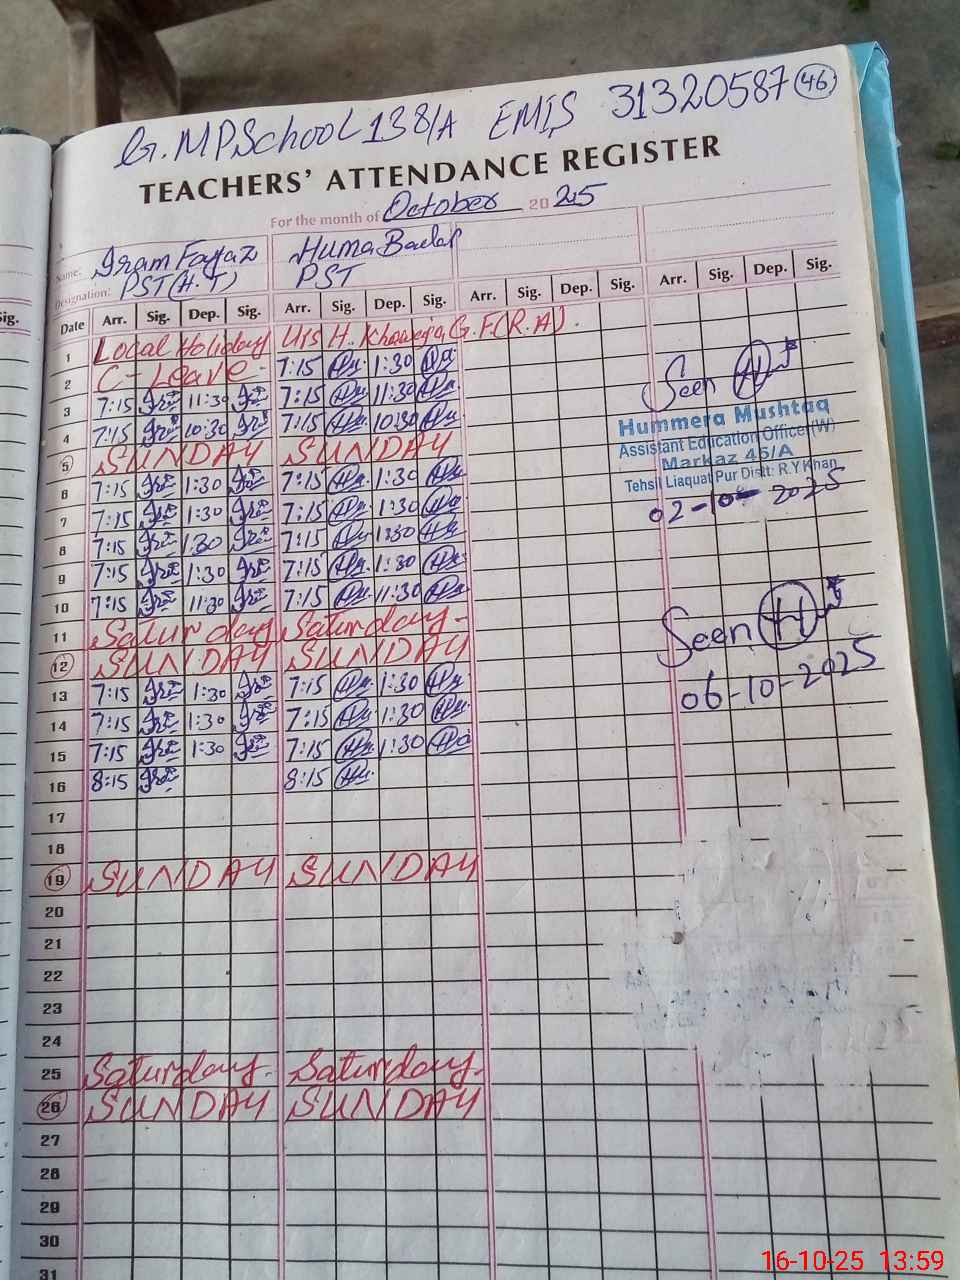 G. MPSchool 138/A EMIS 31320587 46
TEACHERS' ATTENDANCE REGISTER
For the month of October 2025
Name: Iram Fayyaz Huma Badar
Designation: PST (H.T) PST
Date Arr. Sig. Dep. Sig. Arr. Sig. Dep. Sig. Arr. Sig. Dep. Sig. Arr. Sig. Dep. Sig.
1 Local Holiday Urs H. Khawaja G.F(R.A).
2 C-Leave 7:15 1:30
3 7:15 11:30 7:15 11:30
4 7:15 10:30 7:15 10:30
5 SUNDAY SUNDAY
6 7:15 1:30 7:15 1:30
7 7:15 1:30 7:15 1:30
8 7:15 1:30 7:15 1:30
9 7:15 1:30 7:15 1:30
10 7:15 11:30 7:15 11:30
11 Saturday Saturday
12 SUNDAY SUNDAY
13 7:15 1:30 7:15 1:30
14 7:15 1:30 7:15 1:30
15 7:15 1:30 7:15 1:30
16 8:15 8:15
17
18
19 SUNDAY SUNDAY
20
21
22
23
24
25 Saturday. Saturday.
26 SUNDAY SUNDAY
27
28
29
30
31
Seen
Hummera Mushtaq
Assistant Education Officer (W)
Markaz 45/A
Tehsil Liaquat Pur Distt: R.Y Khan
02-10-2025
Seen
06-10-2025
Sig.
16-10-25 13:59